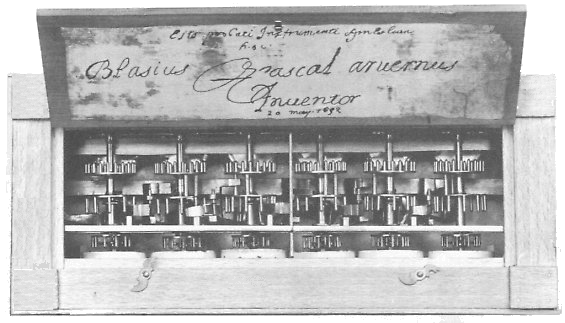 Esto probati Instrumenti
hoc
Blasius Pascal arvernus
Inventor
20 may 1652